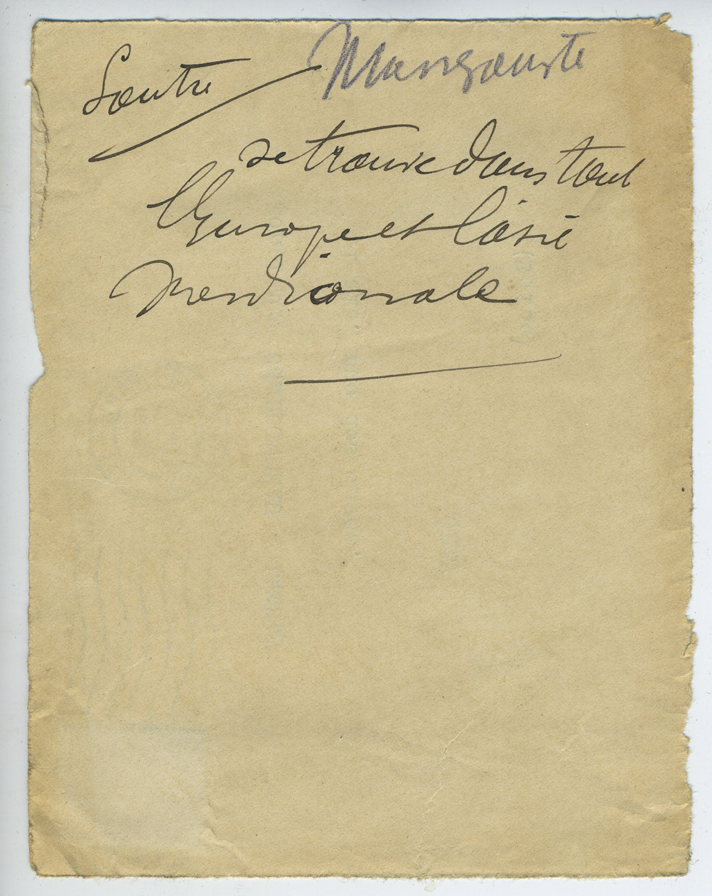 Loutre Mangouste
se trouve dans tout
l'Europe et l'asie
meridionale